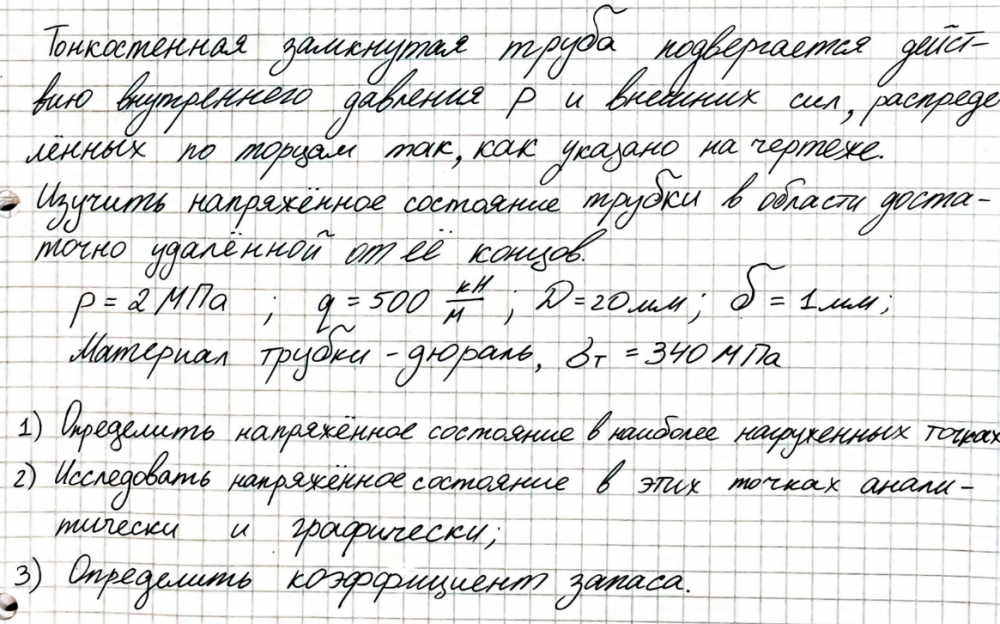 Тонкостенная замкнутая труба подвергается дейст-
вию внутреннего давления p и внешних сил, распреде
лённых по торцам так, как указано на чертеже.
Изучить напряжённое состояние трубки в области доста-
точно удалённой от её концов.
p = 2 МПа ; q = 500 кН/м ; D = 20 мм ; δ = 1 мм ;
Материал трубки - дюраль, σт = 340 МПа
1) Определить напряжённое состояние в наиболее нагруженных точках
2) Исследовать напряжённое состояние в этих точках анали-
тически и графически;
3) Определить коэффициент запаса.